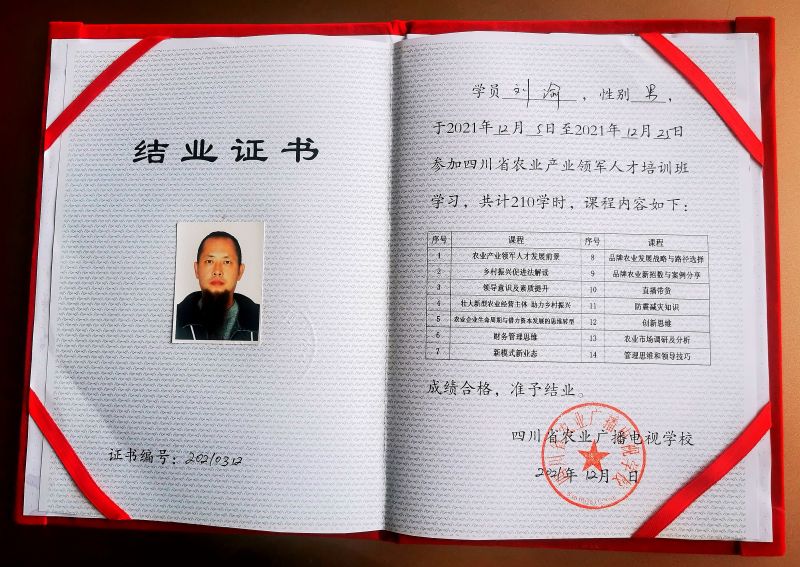 结业证书
证书编号：20210312
学员 刘渝 ，性别 男 ，
于2021年12月5日至2021年12月25日
参加四川省农业产业领军人才培训班
学习，共计210学时，课程内容如下：
序号 课程 序号 课程
1 农业产业领军人才发展前景 8 品牌农业发展战略与路径选择
2 乡村振兴促进法解读 9 品牌农业新招数与案例分享
3 领导意识及素质提升 10 直播带货
4 壮大新型农业经营主体 助力乡村振兴 11 防震减灾知识
5 农业企业生命周期与借力资本发展的思维转型 12 创新思维
6 财务管理思维 13 农业市场调研及分析
7 新模式新业态 14 管理思维和领导技巧
成绩合格，准予结业。
四川省农业广播电视学校
2021年12月 日
四川省农业广播电视学校